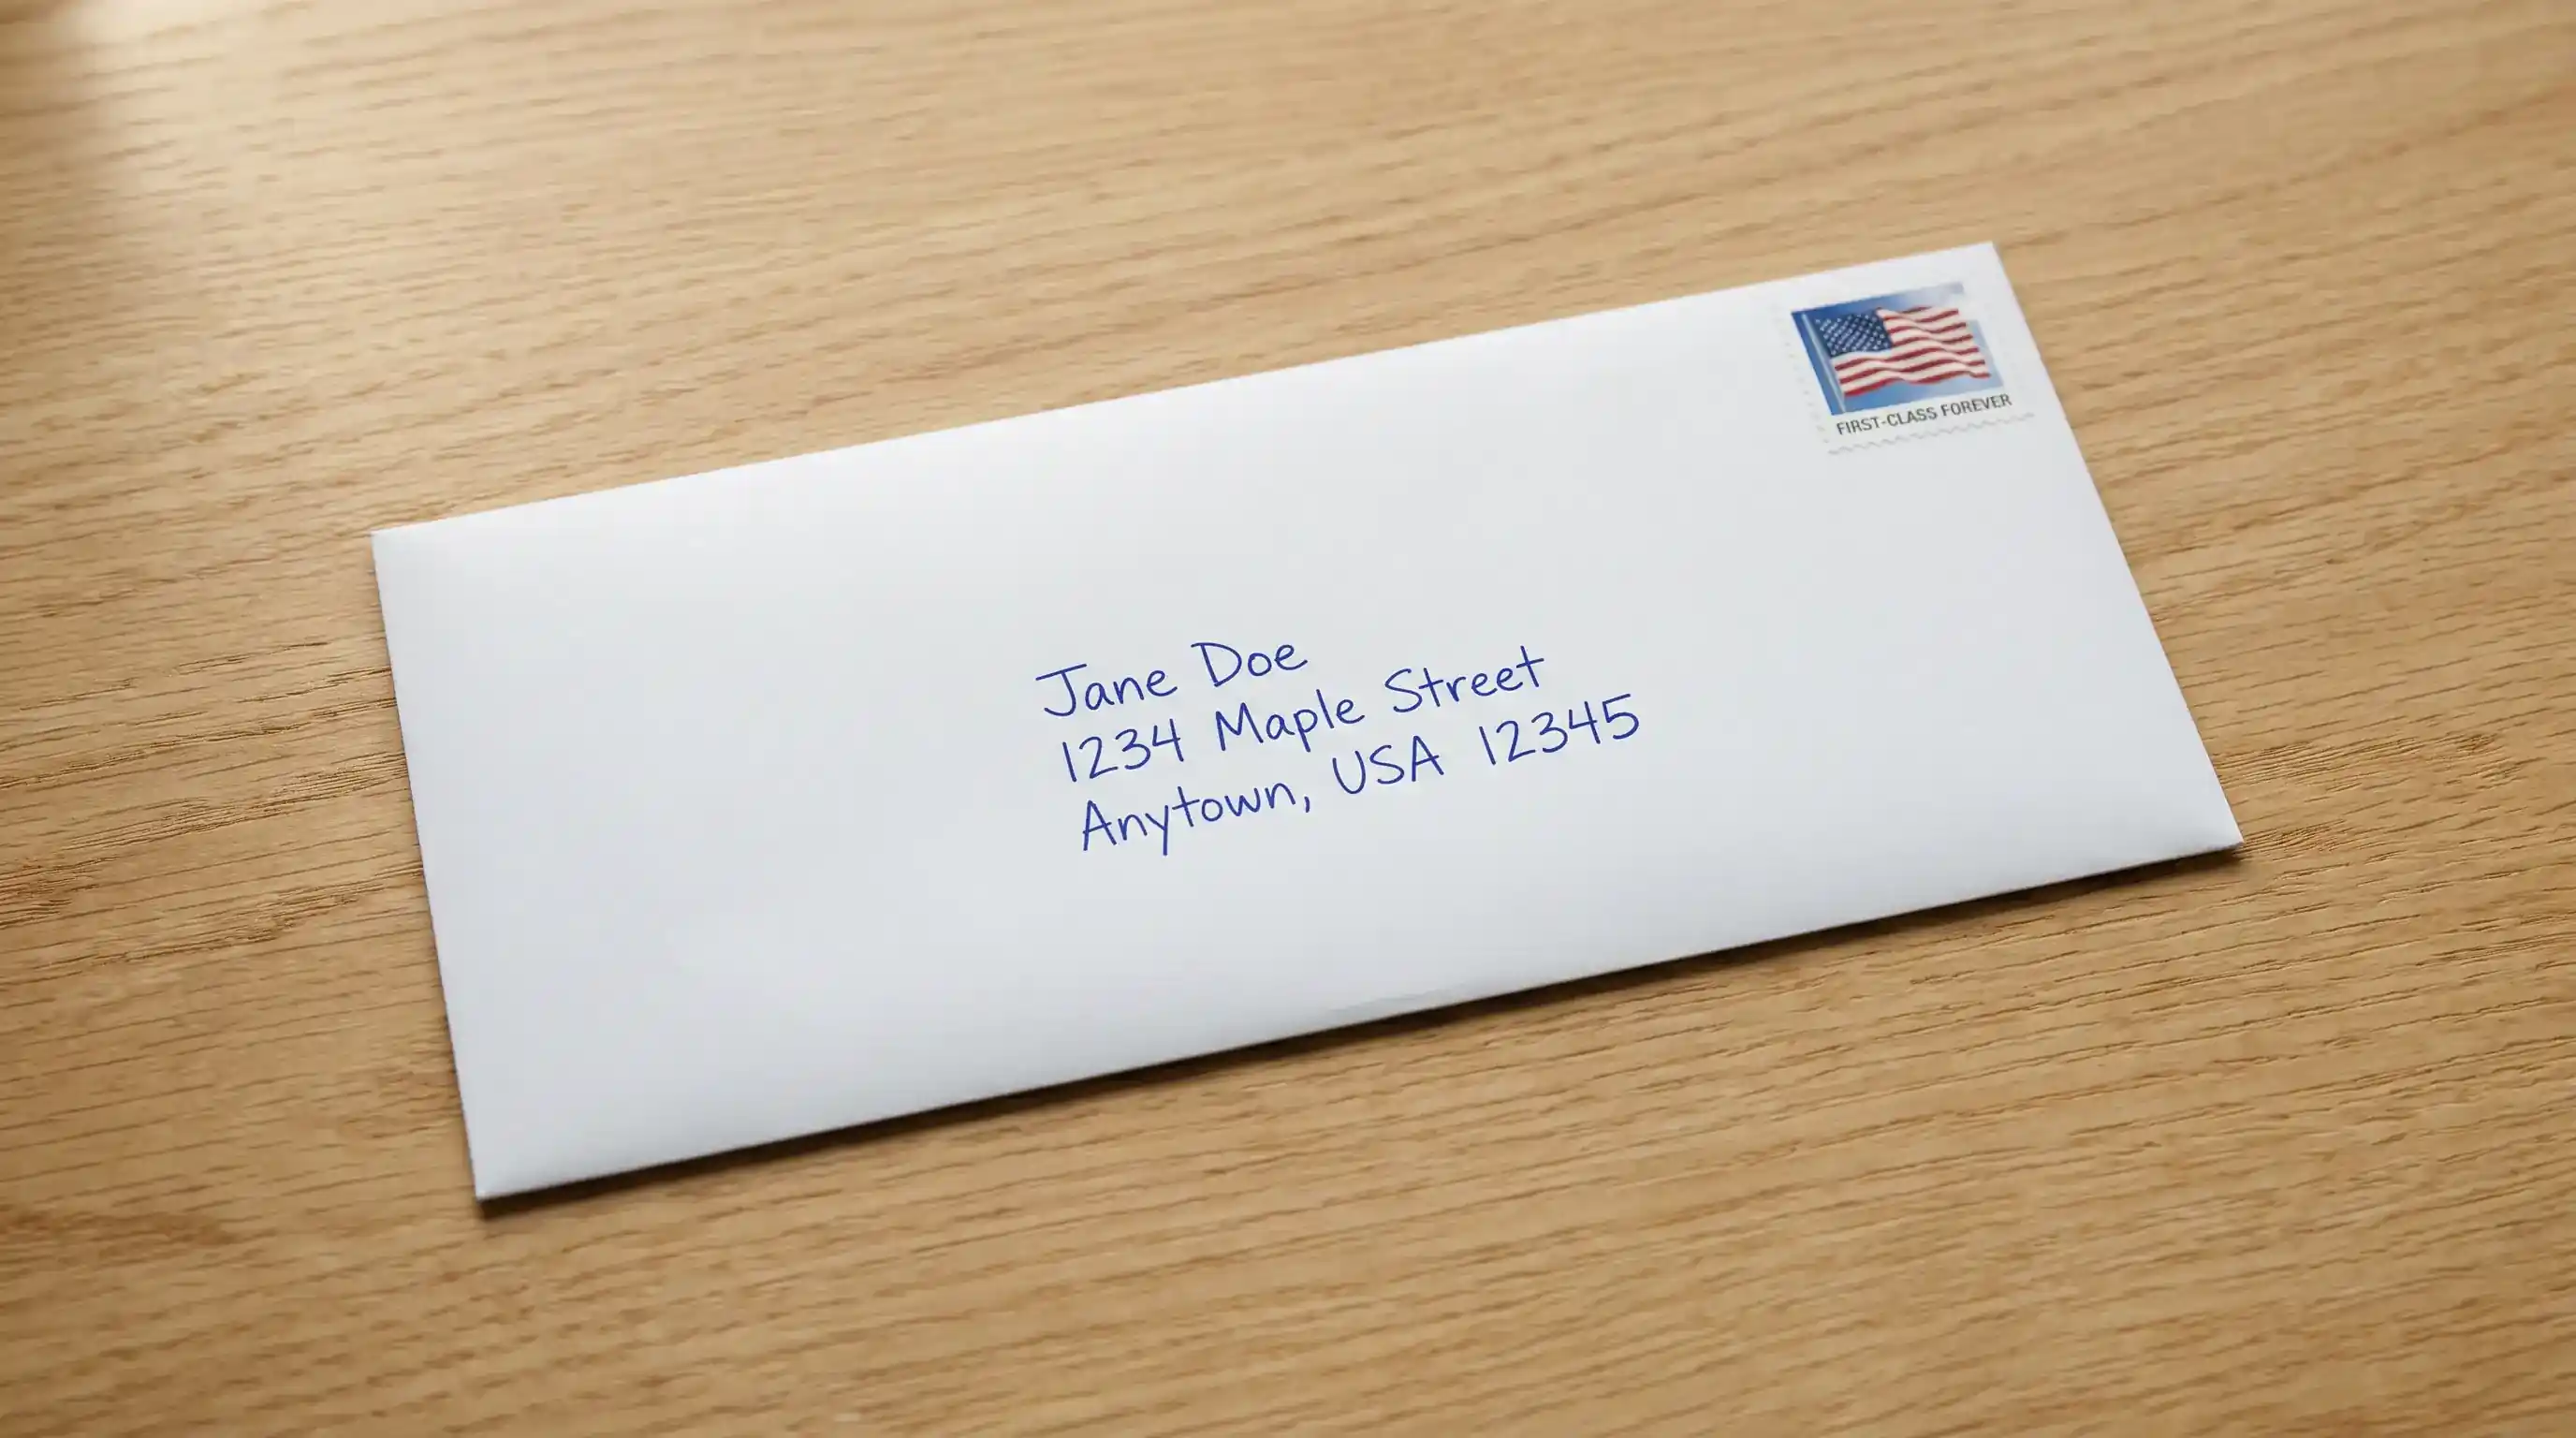 FIRST-CLASS FOREVER
Jane Doe
1234 Maple Street
Anytown, USA 12345